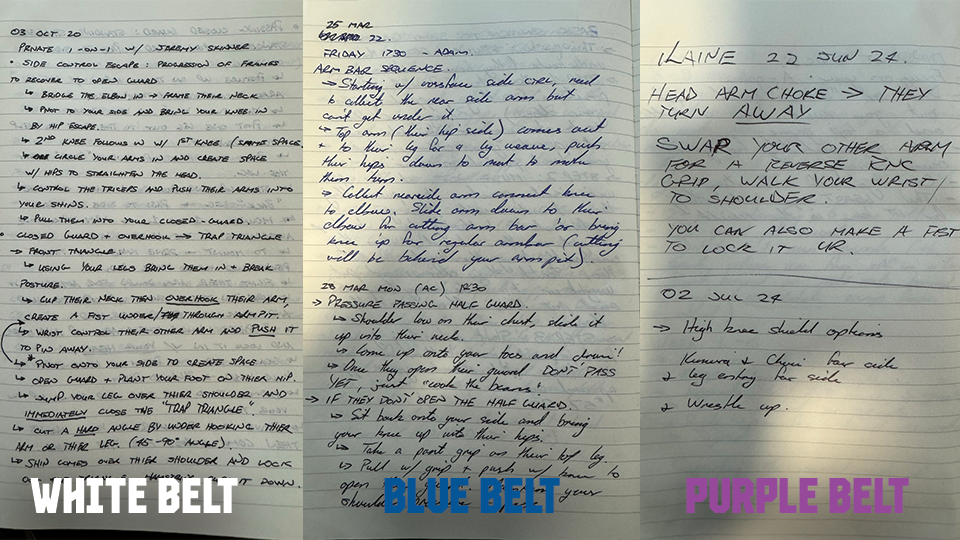 03 OCT 20
PRIVATE 1-ON-1 W/ JEREMY SKINNER
• SIDE CONTROL ESCAPE: PROGRESSION OF FRAMES
TO RECOVER TO OPEN GUARD
↳ BRIDGE THE ELBOW IN → FRAME THEIR NECK
↳ PIVOT TO YOUR SIDE AND BRING YOUR KNEE IN
BY HIP ESCAPE.
↳ 2ND KNEE FOLLOWS IN W/ 1ST KNEE (SAME SPACE
↳ CIRCLE YOUR ARMS IN AND CREATE SPACE
W/ HIPS TO STRAIGHTEN THE HEAD.
↳ CONTROL THE TRICEPS AND PUSH THEIR ARMS INTO
YOUR SHINS.
↳ PULL THEM INTO YOUR CLOSED-GUARD.
• CLOSED GUARD + OVERHOOK → TRAP TRIANGLE
→ FRONT TRIANGLE
↳ USING YOUR LEGS BRING THEM IN + BREAK
POSTURE.
↳ CUP THEIR NECK THEN OVERHOOK THEIR ARM,
CREATE A FIST UNDER/ THROUGH ARMPIT.
↳ WRIST CONTROL THEIR OTHER ARM AND PUSH IT
TO PIN AWAY.
↳ * PIVOT ONTO YOUR SIDE TO CREATE SPACE
↳ OPEN GUARD + PLANT YOUR FOOT ON THIER HIP.
↳ JUMP YOUR LEG OVER THIER SHOULDER AND
IMMEDIATELY CLOSE THE "TRAP TRIANGLE"
↳ CUT A HARD ANGLE BY UNDER HOOKING THIER
ARM OR THIER LEG. (45-90° ANGLE)
↳ SHIN COMES OVER THIER SHOULDER AND LOCK
IT DOWN.
WHITE BELT
25 MAR
22.
FRIDAY 1730 - ADAM.
ARM BAR SEQUENCE.
→ Starting w/ crossface side ctrl, need
to collect the near side arm but
can't get under it.
↳ Top arm (their hip side) comes out
+ to their leg for a leg weave, push
their hips down to mat to make
them turn.
↳ Collect nearside arm connect knee
to elbow. Slide arm down to their
elbow for cutting arm bar or bring
knee up for regular armbar (cutting
will be behind your armpit).
28 MAR MON (AC) 1830
→ PRESSURE PASSING HALF GUARD.
↳ Shoulder low on their chest, slide it
up into their neck.
↳ Come up onto your toes and drive!
↳ Once they open their guard DON'T PASS
YET, just "cook the beans"
→ IF THEY DON'T OPEN THE HALF GUARD.
↳ Sit back onto your side and bring
your knee up into their hips.
↳ Take a pant grip on their top leg
↳ Pull w/ grip + push w/ knee to
open
your
BLUE BELT
ILAINE 22 JUN 24.
HEAD ARM CHOKE → THEY
TURN AWAY
SWAP YOUR OTHER ARM
FOR A REVERSE RNC
GRIP, WALK YOUR WRIST/
TO SHOULDER.
YOU CAN ALSO MAKE A FIST
TO LOCK IT UP.
02 JUL 24
→ High knee shield options
Kimura & far side
& leg entry far side
& Wrestle up.
PURPLE BELT